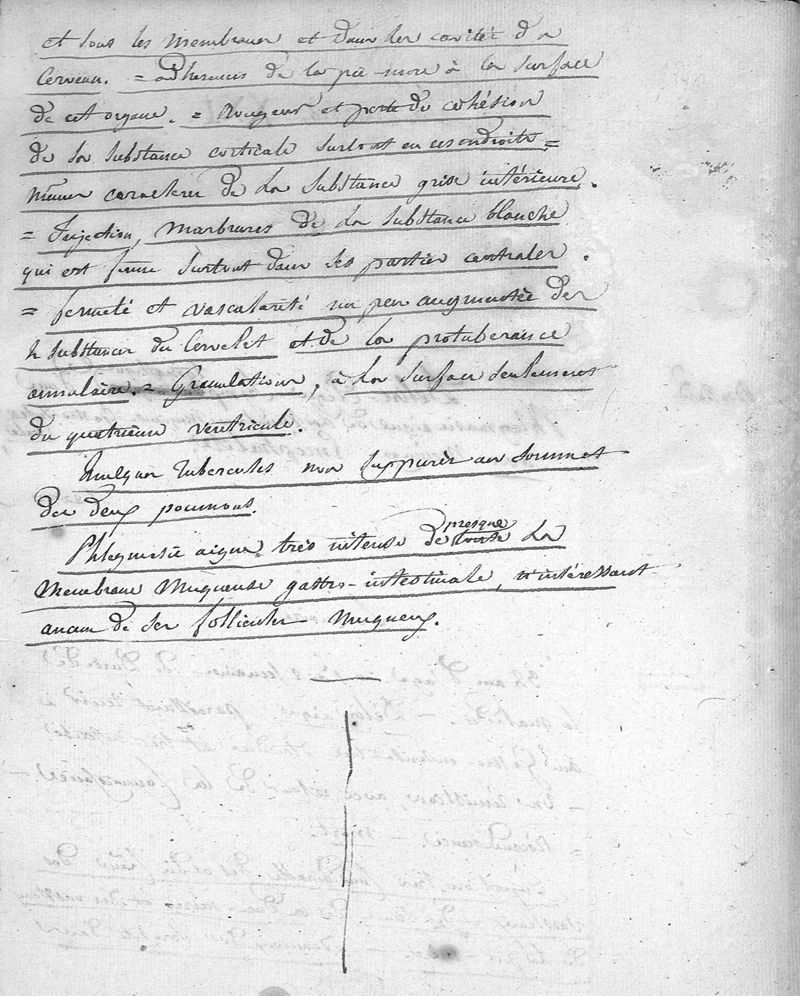 et sous les membranes et dans les cavités du
Cerveau. = adherences de la pie-mere à la surface
de cet organe. = Rougeur et perte de cohésion
de la substance corticale surtout en ces endroits =
mêmes caracteres de la substance grise intérieure.
= Injection, marbrures de la substance blanche
qui est ferme surtout dans les parties centrales.
= fermeté et vascularité un peu augmentées des
substances du Cervelet et de la protuberance
annulaire. = Granulations, à la surface seulement
du quatrieme ventricule.
Quelques tubercules non suppurés au sommet
des deux poumons.
Phlegmasie aigue très intense de presque toute la
Membrane Muqueuse gastro-intestinale, n'intéressant
aucun de ses follicules muqueux.